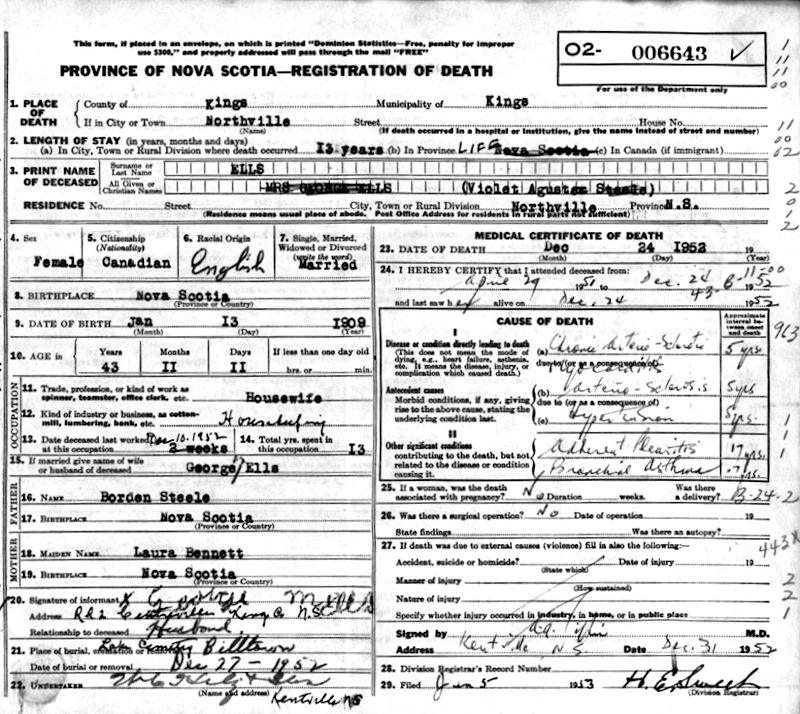 This form, if placed in an envelope, on which is printed "Dominion Statistics—Free, penalty for improper
use $300," and properly addressed will pass through the mail "FREE"
PROVINCE OF NOVA SCOTIA—REGISTRATION OF DEATH
O2- 006643 ✓
For use of the Department only
1. PLACE OF DEATH
County of Kings Municipality of Kings
If in City or Town Northville Street House No.
(Name) (If death occurred in a hospital or institution, give the name instead of street and number)
2. LENGTH OF STAY (in years, months and days)
(a) In City, Town or Rural Division where death occurred 13 years (b) In Province LIFE Nova Scotia (c) In Canada (if immigrant)
3. PRINT NAME OF DECEASED
Surname or Last Name ELLS
All Given or Christian Names MRS GEORGE ELLS (Violet Agustam Steele)
RESIDENCE No. Street City, Town or Rural Division Northville Province N.S.
(Residence means usual place of abode. Post Office Address for residents in rural parts not sufficient)
4. Sex Female
5. Citizenship (Nationality) Canadian
6. Racial Origin English
7. Single, Married, Widowed or Divorced (write the word) Married
8. BIRTHPLACE Nova Scotia
(Province or Country)
9. DATE OF BIRTH Jan 13 1909
(Month) (Day) (Year)
10. AGE in Years Months Days If less than one day old
43 11 11 hrs. or min.
OCCUPATION
11. Trade, profession, or kind of work as
spinner, teamster, office clerk, etc. Housewife
12. Kind of industry or business, as cotton-
mill, lumbering, bank, etc. Housekeeping
13. Date deceased last worked at this occupation Dec 10, 1952 2 weeks
14. Total yrs. spent in this occupation 13
15. If married give name of wife
or husband of deceased George Ells
FATHER
16. NAME Borden Steele
17. BIRTHPLACE Nova Scotia
(Province or Country)
MOTHER
18. MAIDEN NAME Laura Bennett
19. BIRTHPLACE Nova Scotia
(Province or Country)
20. Signature of informant X George M Ells
Address R R 2 Centreville Kings Co N.S.
Relationship to deceased Husband
21. Place of burial, cremation or removal Cemetery Billtown
Date of burial or removal Dec 27 - 1952
22. UNDERTAKER
(Name and address) Kentville NS
MEDICAL CERTIFICATE OF DEATH
23. DATE OF DEATH Dec 24 1952 19
(Month) (Day) (Year)
24. I HEREBY CERTIFY that I attended deceased from:
April 29 1951 to Dec. 24 1952
and last saw her alive on Dec. 24 1952
CAUSE OF DEATH
Approximate interval between onset and death
I
Disease or condition directly leading to death
(This does not mean the mode of
dying, e.g., heart failure, asthenia,
etc. It means the disease, injury, or
complication which caused death.)
(a) Chronic Arterio-Sclerotic 5 yrs
due to (or as a consequence of)
Antecedent causes
Morbid conditions, if any, giving
rise to the above cause, stating the
underlying condition last.
(b) Arterio-Sclerosis 5 yrs
due to (or as a consequence of)
(c) Hypertension 5 yrs.
II
Other significant conditions
contributing to the death, but not
related to the disease or condition
causing it.
Adherent Pleuritis 17 yrs.
Bronchial Asthma 17 yrs.
25. If a woman, was the death
associated with pregnancy? No Duration weeks. Was there a delivery?
B-24-2
26. Was there a surgical operation? No Date of operation 19
State findings Was there an autopsy?
27. If death was due to external causes (violence) fill in also the following:— 443X
Accident, suicide or homicide? Date of injury 19
(State which)
Manner of injury
(How sustained)
Nature of injury
Specify whether injury occurred in industry, in home, or in public place
Signed by M.D.
Address Kentville, N S Date Dec. 31 1952
28. Division Registrar's Record Number
29. Filed Jan 5 1953
(Division Registrar)